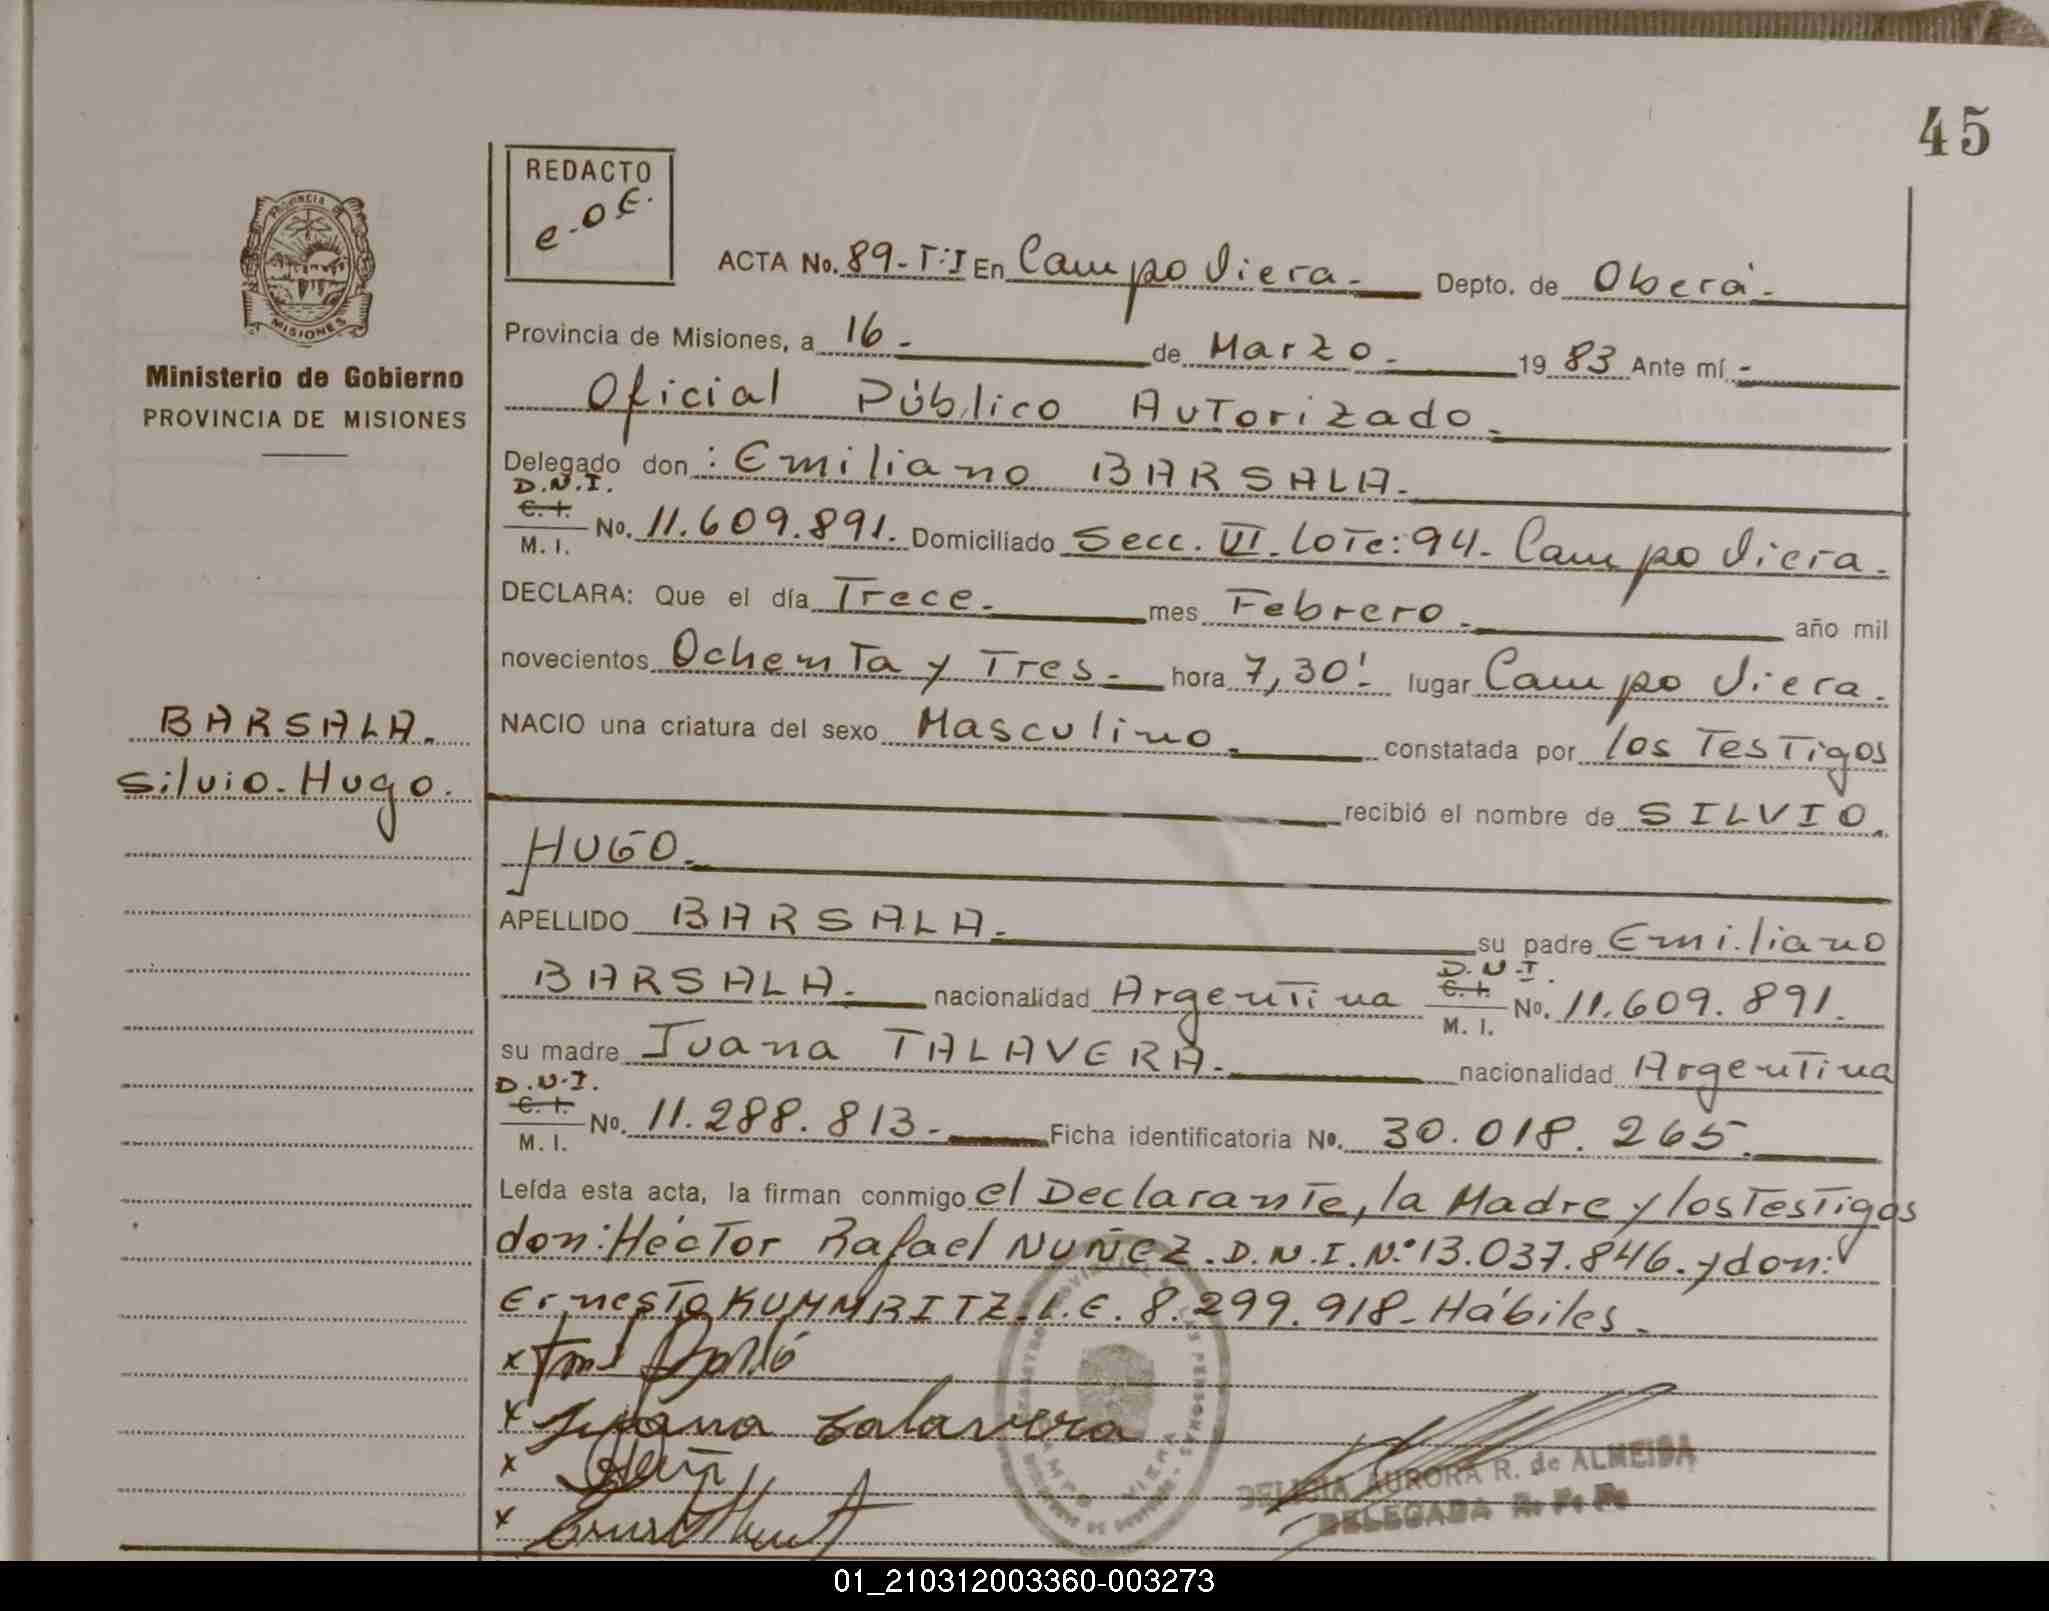 45
REDACTO
e.o.E.
PROVINCIA DE
MISIONES
Ministerio de Gobierno
PROVINCIA DE MISIONES
ACTA No. 89-T:I En Campo Viera.- Depto. de Oberá.-
Provincia de Misiones, a 16.- de Marzo.- 1983 Ante mí.-
Oficial Público Autorizado.-
Delegado don: Emiliano BARSALA.-
D.N.I.
C. I.
M. I. No. 11.609.891. Domiciliado Secc. VI. Lote: 94. Campo Viera.-
DECLARA: Que el día Trece.- mes Febrero.- año mil
novecientos Ochenta y Tres.- hora 7,30'.- lugar Campo Viera.-
BARSALA.
Silvio. Hugo.
NACIO una criatura del sexo Masculino.- constatada por los Testigos
recibió el nombre de SILVIO.
HUGO.-
APELLIDO BARSALA.- su padre Emiliano
BARSALA.- nacionalidad Argentina D.N.I. C. I. M. I. No. 11.609.891.
su madre Juana TALAVERA.- nacionalidad Argentina
D.N.I.
C. I.
M. I. No. 11.288.813.- Ficha identificatoria No. 30.018.265.-
Leída esta acta, la firman conmigo el Declarante, la Madre y los Testigos
don: Héctor Rafael NUÑEZ. D.N.I. Nº 13.037.846. y don:
Ernesto KUMMRITZ. L.E. 8.299.918- Hábiles.-
x
x Juana talavera
x
x
CAMPO VIERA
DELICIA AURORA R. de ALMEIDA
DELEGADA R. P. P.
01_210312003360-003273